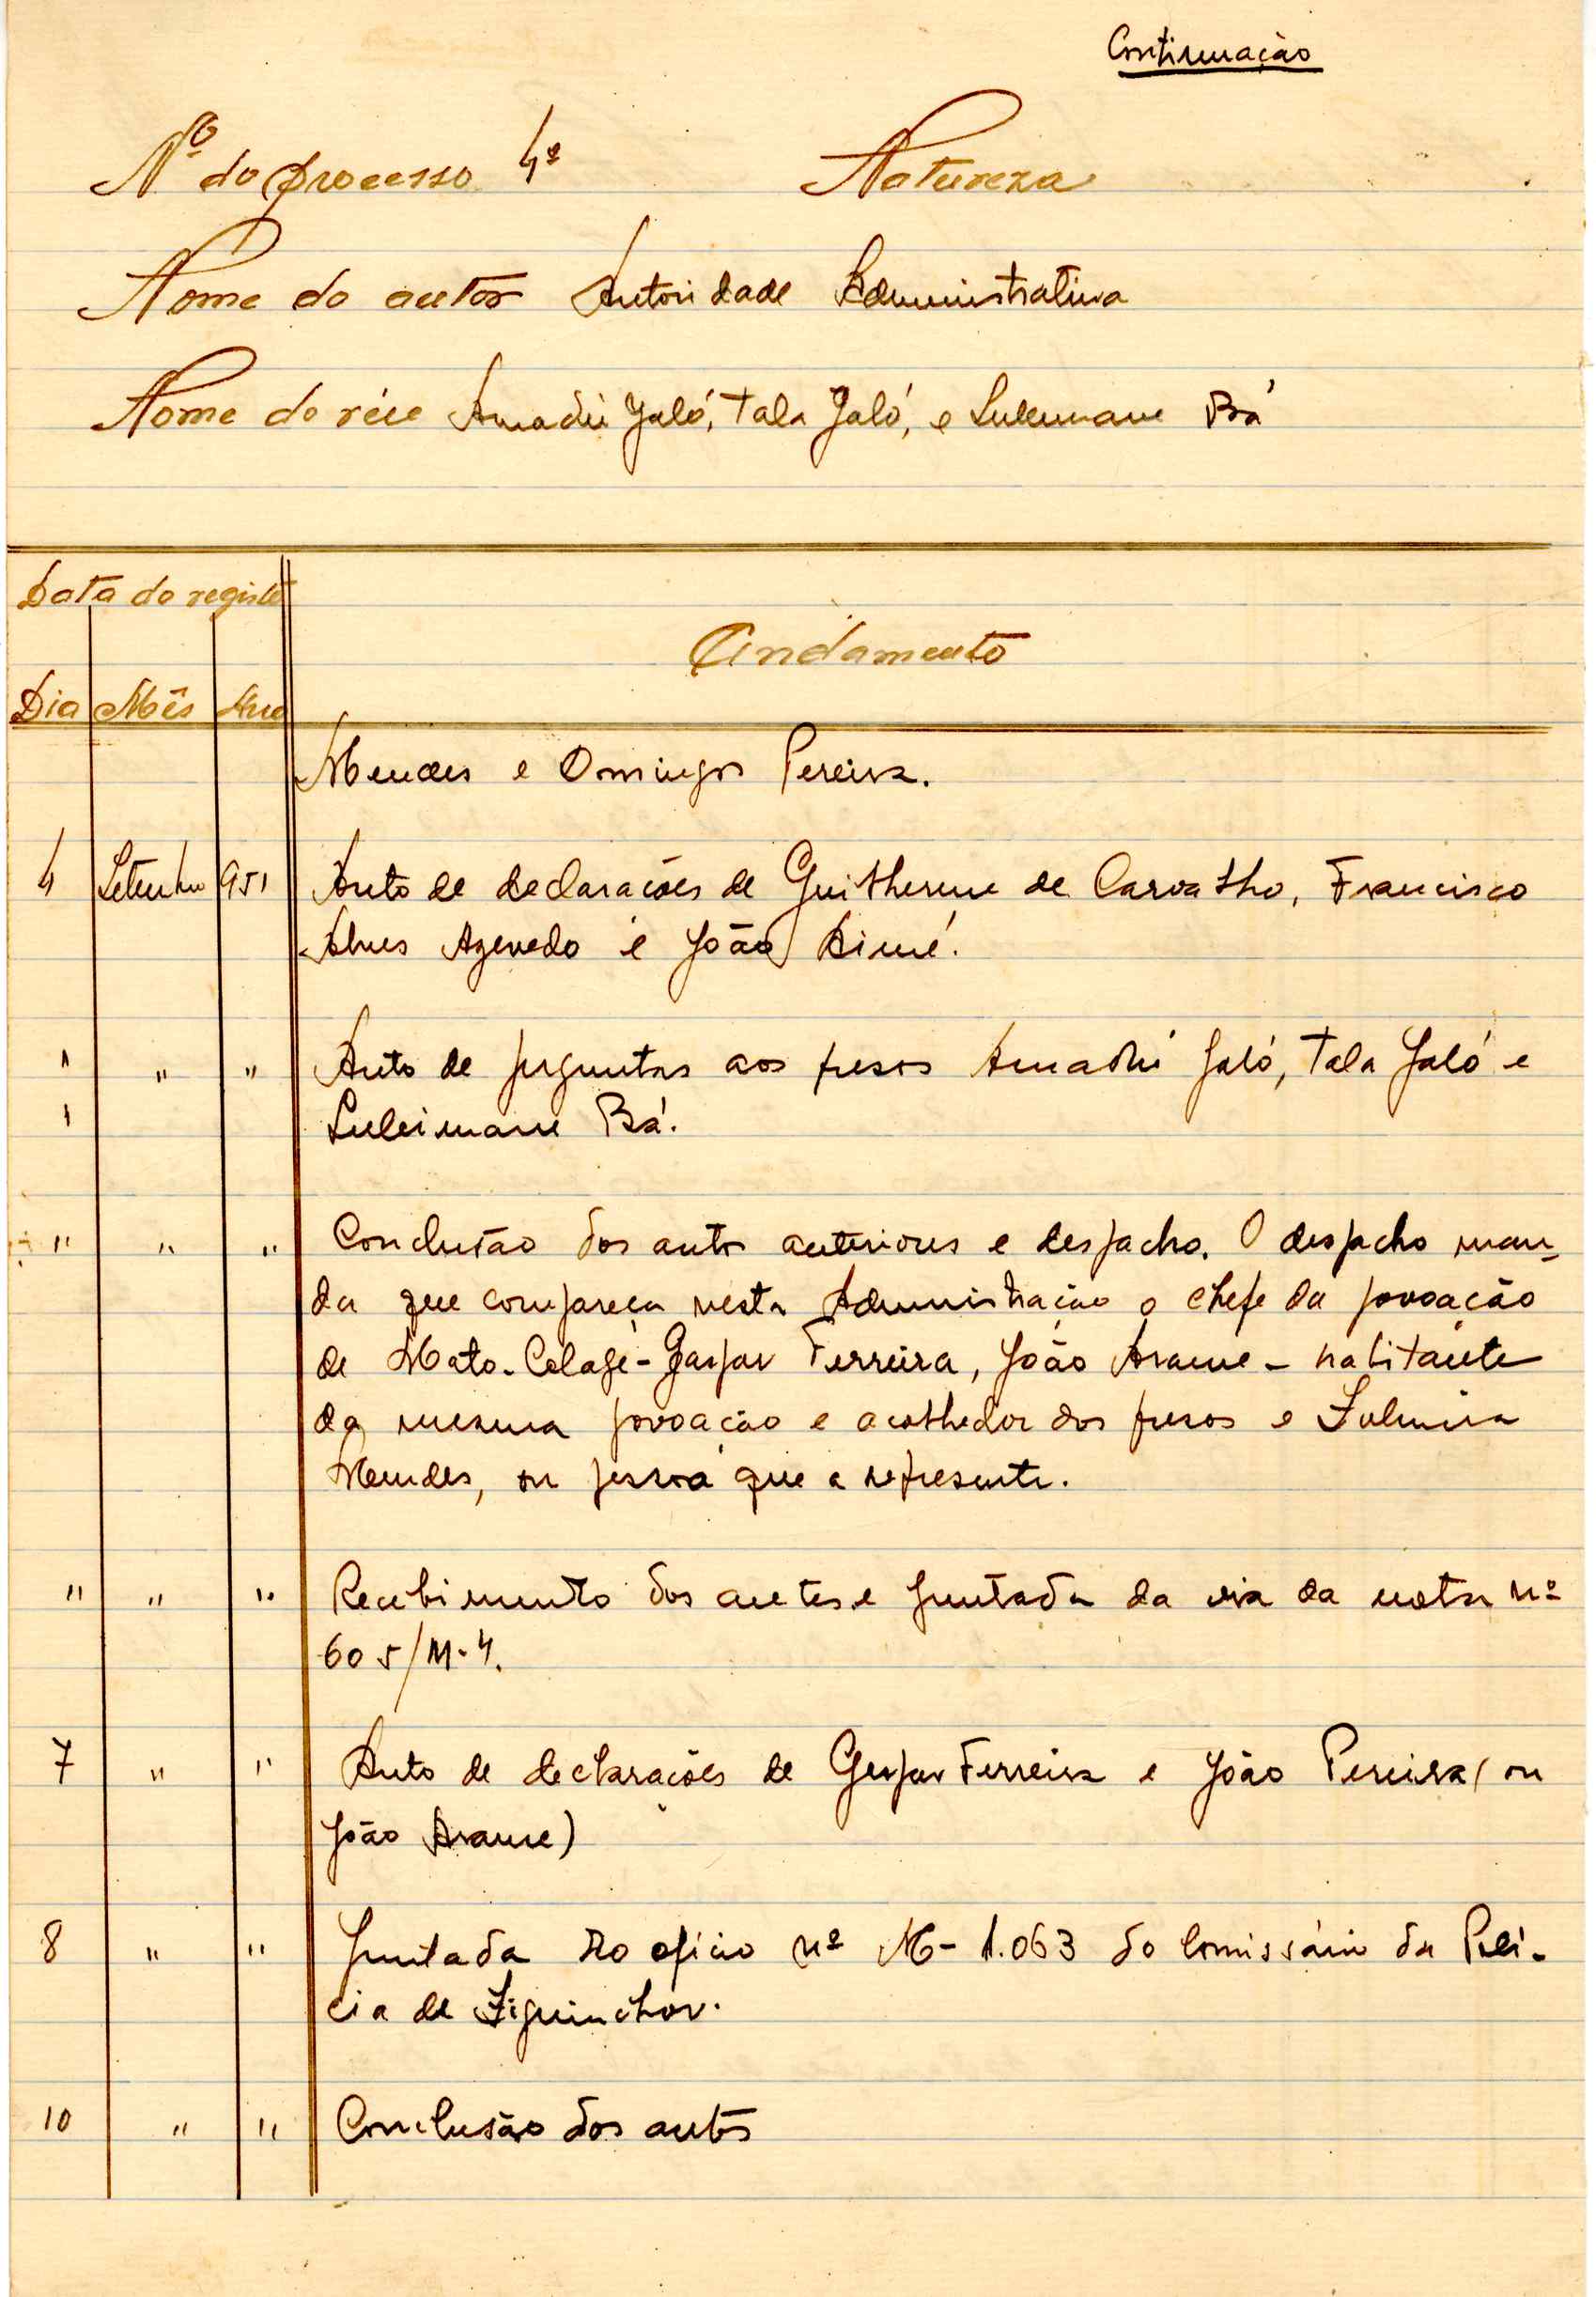 Continuação
Nº do processo 4º Natureza
Nome do autor Autoridade Administrativa
Nome do réu Amadú Jaló, Tala Jaló, e Suleimane Bá
Data do registo
Andamento
Dia Mês Ano
Mendes e Domingos Pereira.
4 Setembro 951 Auto de declarações de Guilherme de Carvalho, Francisco
Alves Azevedo e João Aimé.
" " " Auto de perguntas aos presos Amadú Jaló, Tala Jaló e
Suleimane Bá.
" " " Conclusão dos autos anteriores e despacho. O despacho man-
da que compareça nesta Administração o chefe da povoação
de Mato-Colagé-Gaspar Ferreira, João Arame - habitante
da mesma povoação e acolhedor dos presos e
Mendes, ou pessoa que a represente.
" " " Recebimento dos autos e juntada da via da nota nº
605/M-4.
7 " " Auto de declarações de Gaspar Ferreira e João Pereira (ou
João Arame)
8 " " Juntada do ofício nº M-1.063 do Comissário da Polí-
cia de Ziguinchor.
10 " " Conclusão dos autos